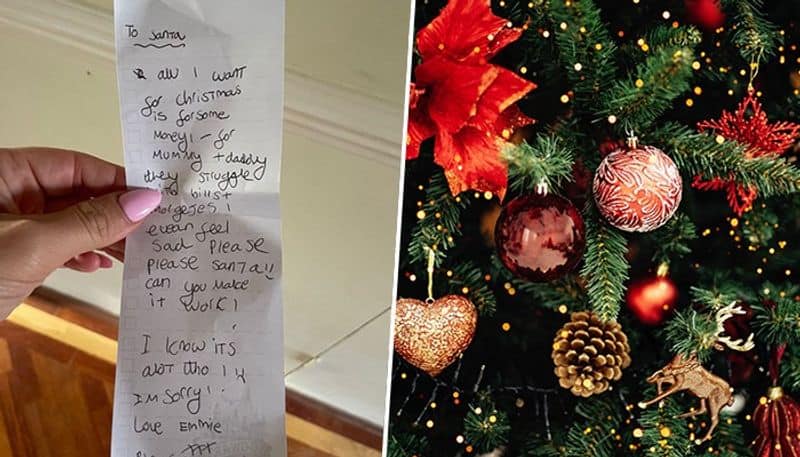 To Santa
all I want
for christmas
is forsome
money! - for
Mummy + daddy
they struggle
bills +
morgeses!
evean feel
sad Please
please Santa!!
can you make
it work!
I know its
alot tho!
I'm sorry!
Love Emmie